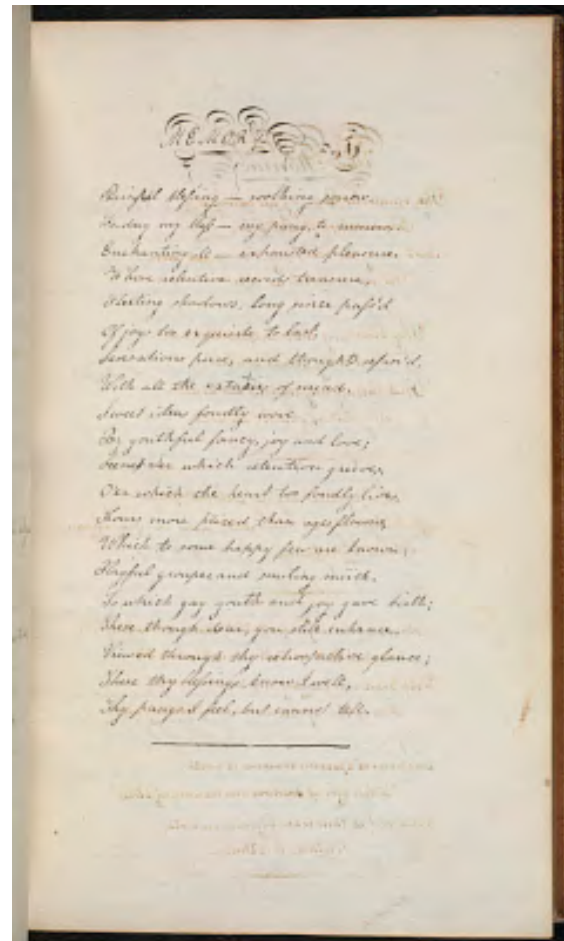 MEMORY
Painful blessing — soothing sorrow
Today my bliss — my pang, to morrow
Enchanting — exhausted pleasure
Where retentive records treasure,
Fleeting shadows, long since pass'd
Of joys too exquisite to last,
Sensations pure, and thoughts refin'd,
With all the extasies of mind.
Sweet ideas fondly wove
By youthful fancy, joy and love;
which retention
O'er which the heart too fondly lives,
Hours more prized than ages flown,
Which to some happy few are known;
Playful groupes and smiling mirth,
To which gay youth and joy gave birth;
These though dear, you still enhance,
Viewed through thy retrospective glance;
These thy blessings know I well,
Thy pangs I feel, but cannot tell.